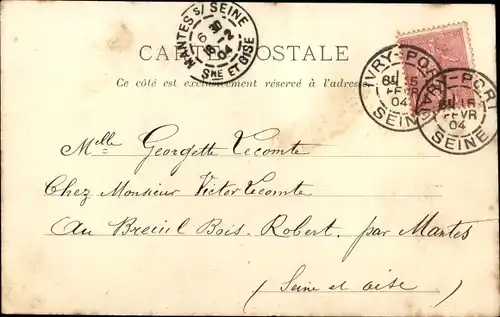 MANTES S/ SEINE
6 2
04
SNE ET OISE
CARTE POSTALE
Ce côté est exclusivement réservé à l'adresse
IVRY-PORT
15
FEVR
04
SEINE
IVRY-PORT
15
FEVR
04
SEINE
Melle Georgette Lecomte
Chez Monsieur Victor Lecomte
Au Breuil Bois. Robert. par Mantes
(Seine et oise)